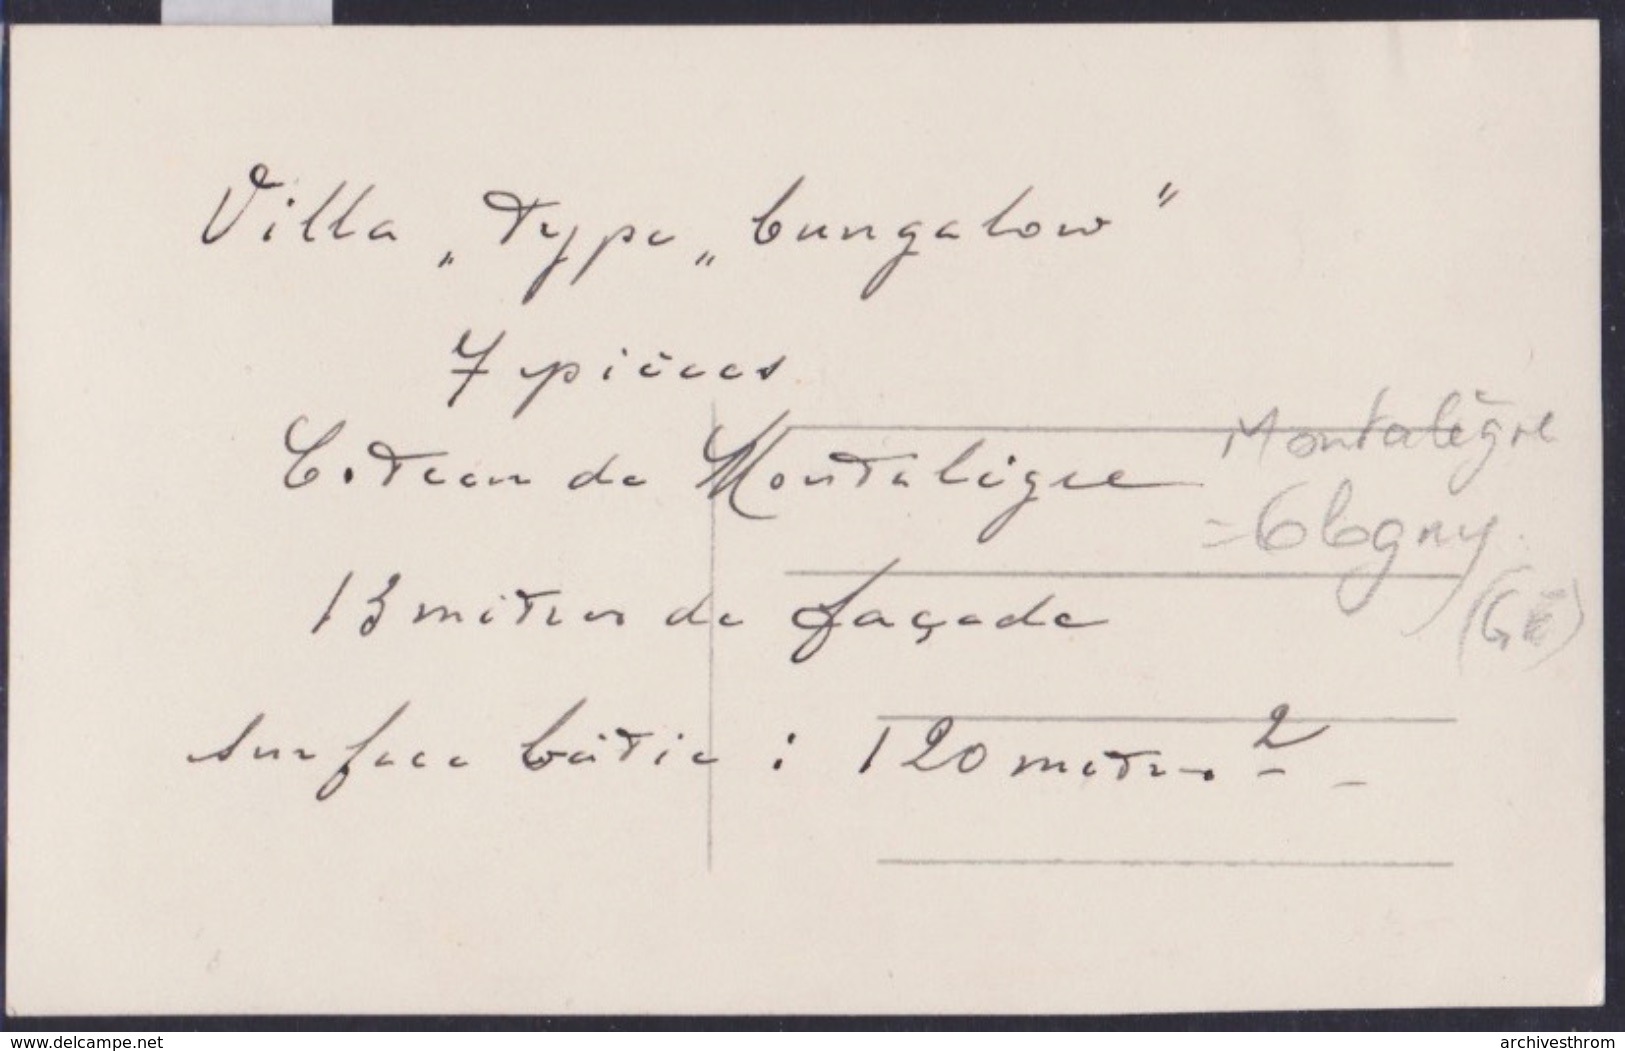 Villa „ Type „ bungalow "
7 pièces
Coteau de Montalègre
Montalègre
= Cologny
(GE)
13 mètres de façade
surface bâtie : 120 mètres 2
www.delcampe.net
archivesthrom